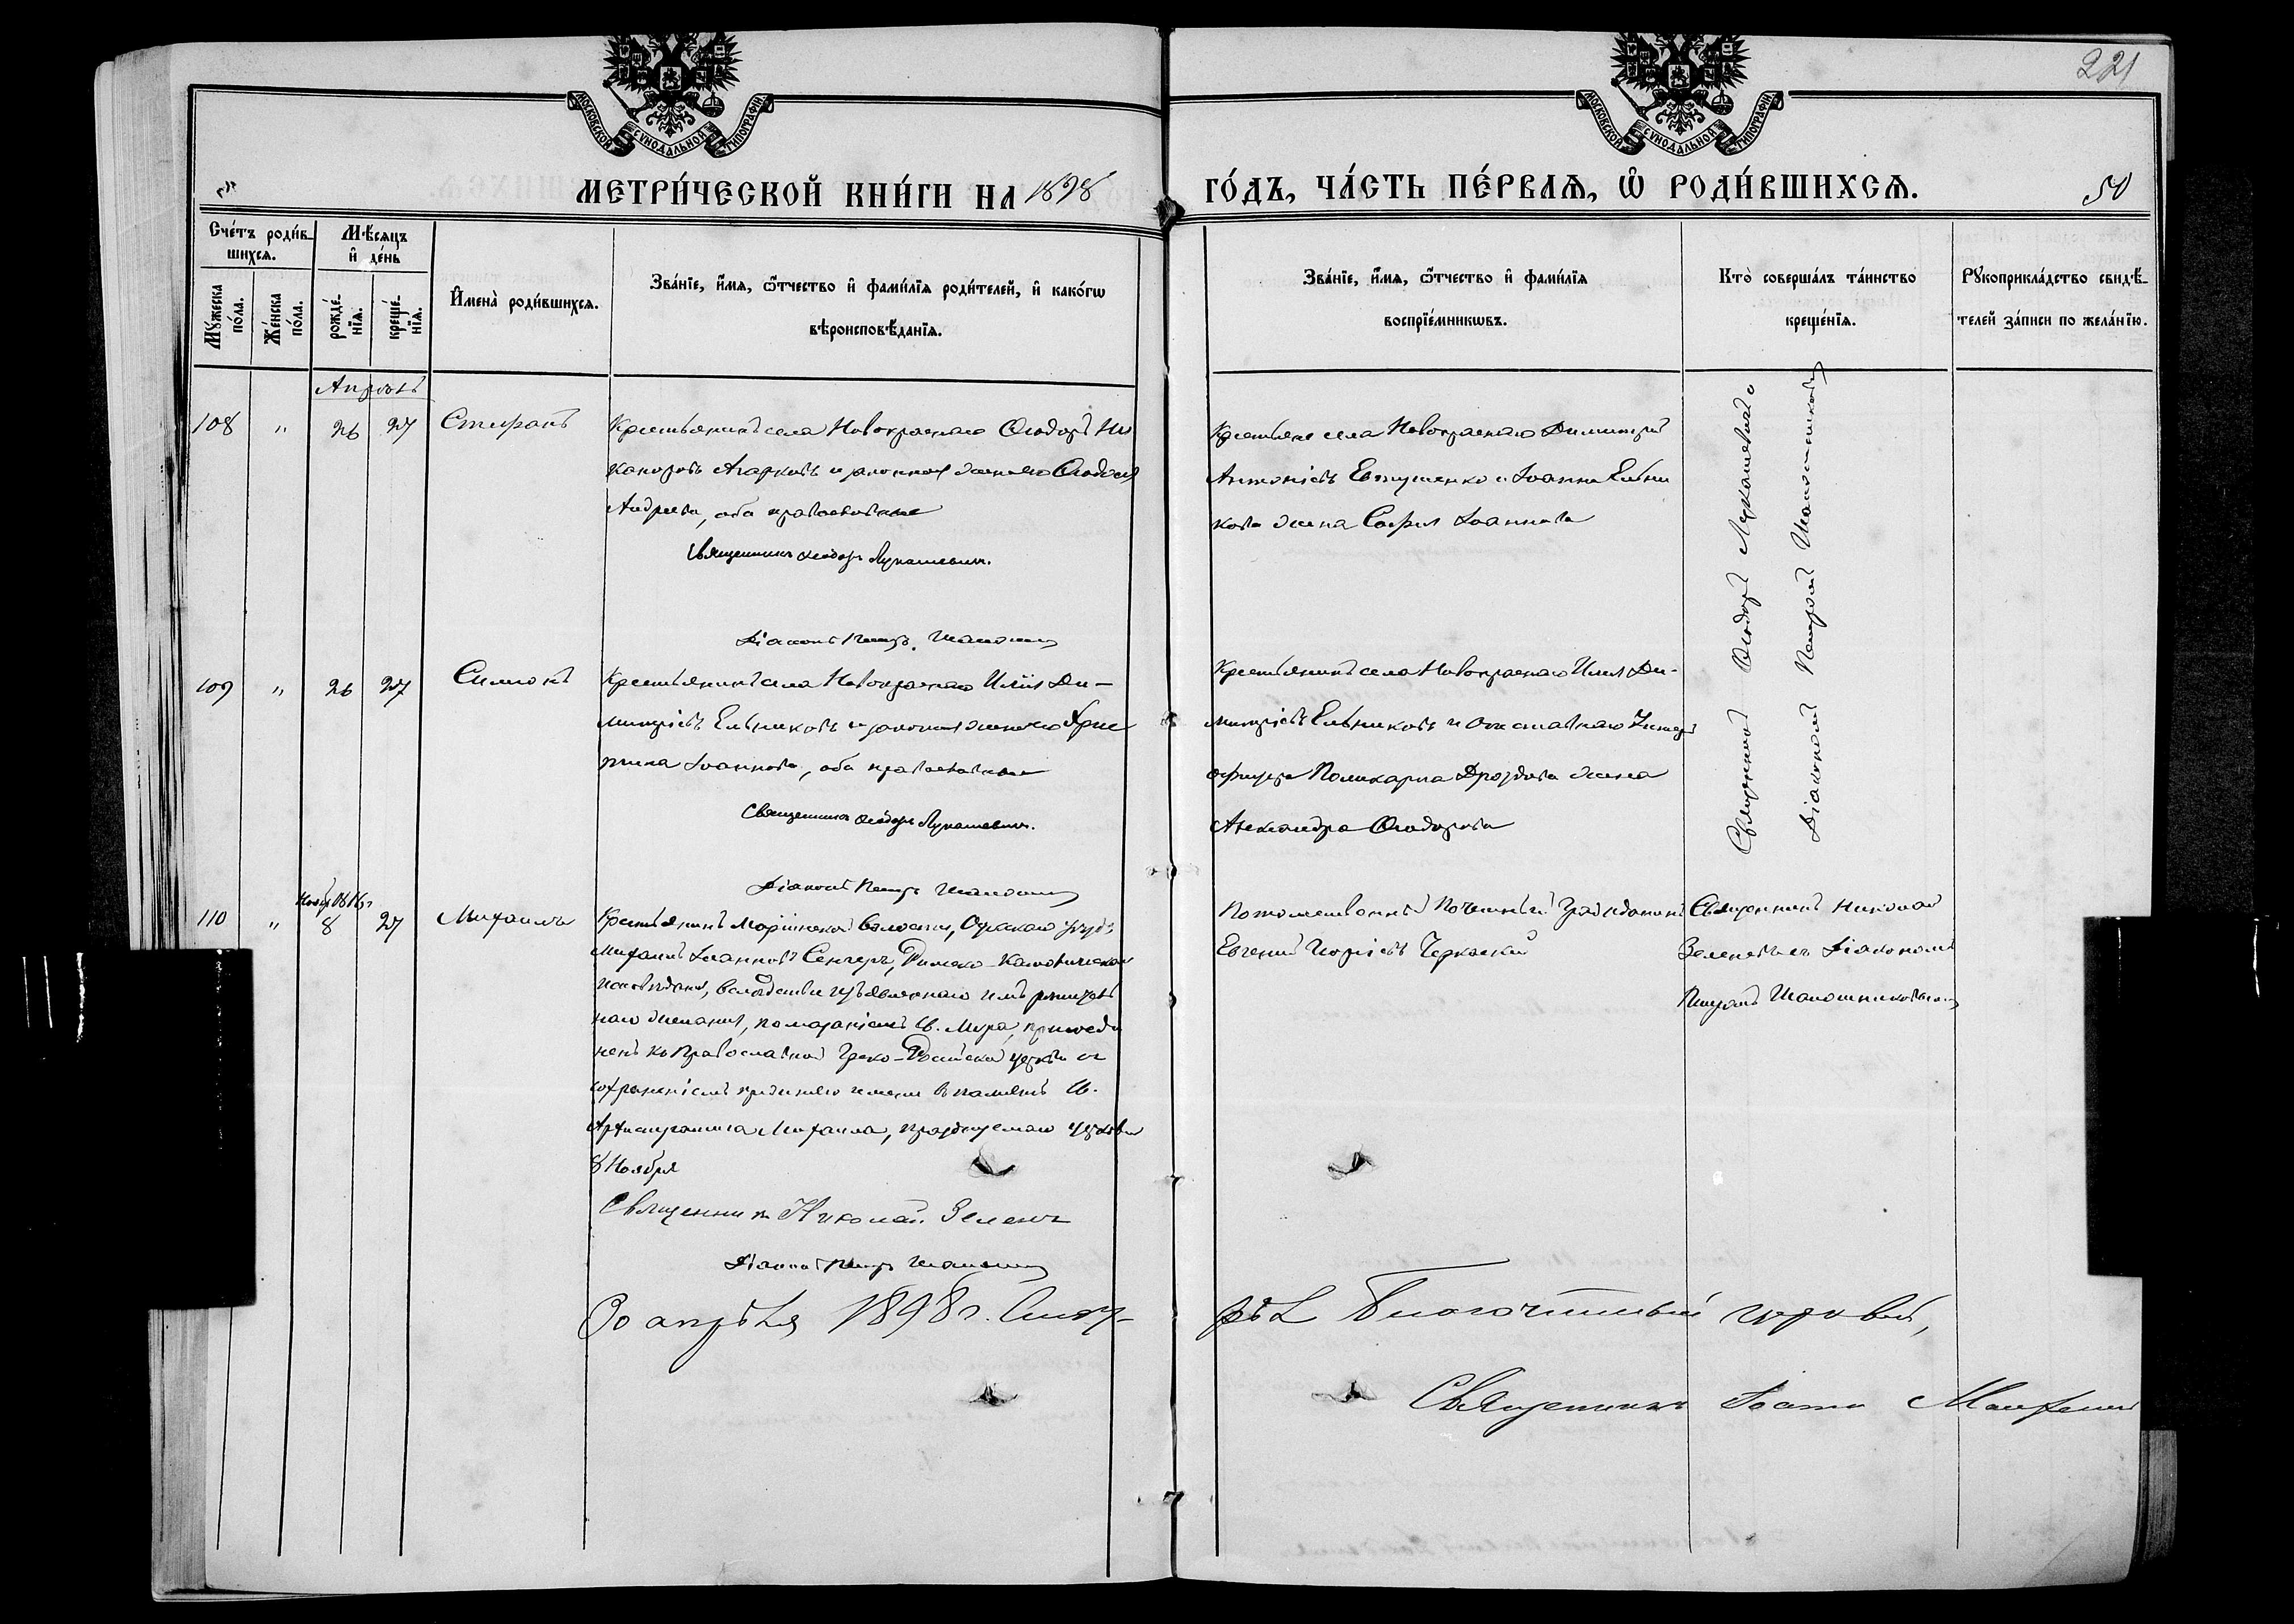 221
МОСКОВСКОЙ СѴНОДАЛЬНОЙ ТИПОГРАФІИ
МОСКОВСКОЙ СѴНОДАЛЬНОЙ ТИПОГРАФІИ
МЕТРИ́ЧЕСКОЙ КНИ́ГИ НА 1898
ГО́ДЪ, ЧА́СТЬ ПЕ́РВАѦ, Ѡ҆ РОДИ́ВШИХСѦ.
50
Сче́тъ роди́в-
шихсѧ.
Мꙋжеска по́ла.
Же́нска по́ла.
Мѣ́сѧцъ
и҆ де́нь
рожде́нїѧ.
креще́нїѧ.
И҆мена̀ роди́вшихсѧ.
Зва́нїе, и҆́мѧ, ѻ҆́тчество и҆ фами́лїѧ роди́телей, и҆ како́гѡ
вѣроисповѣ́данїѧ.
Зва́нїе, и҆́мѧ, ѻ҆́тчество и҆ фами́лїѧ
воспрїе́мникѡвъ.
Кто̀ соверша́лъ та́инство
креще́нїѧ.
Рꙋкоприкла́дство свидѣ́-
телей за́писи по жела́нїю.
Апрѣль
108 " 26 27 Стефанъ
Крестьянинъ села Новокраснаго Ѳеодоръ Ни
каноровъ Агарковъ и законная жена его Ѳеодосія
Андреева, оба православные
Священникъ Ѳеодоръ Лукашевичъ.
Діаконъ Петръ
Крестьяне села Новокраснаго Димитрій
Антоніевъ Евтушенко и Іоанна Ельни
кова жена Софія Іоаннова
Священникъ Ѳеодоръ Лукашевичъ
Діаконъ Петръ
109 " 26 27 Симеонъ
Крестьянинъ села Новокраснаго Илія Ди-
митріевъ Ельниковъ и законная жена его Хрис
тина Іоаннова, оба православные
Священникъ Ѳеодоръ Лукашевичъ.
Діаконъ Петръ
Крестьянинъ села Новокраснаго Илія Ди-
митріевъ Ельниковъ и отставнаго Унтеръ
офицера Поликарпа Дроздова жена
Александра Ѳеодорова
110 " 8 27 Михаилъ
Крестьянинъ Маріинской волости, уѣзда
Михаилъ Іоанновъ Римско-Католическаго
исповѣданія, вслѣдствіе изъявленнаго имъ
наго желанія, помазаніемъ Св. Мура, присоеди
ненъ къ Православной Греко-Россійской церкви съ
сохраненіемъ прежняго имени въ память Св.
Архистратига Михаила, празднуемаго церковью
8 Ноября
Священникъ Николай Зеленъ
Діаконъ Петръ
Потомственный Почетный Гражданинъ
Евгеній Черкаскій
Священникъ Николай
съ Діакономъ
Петромъ
30 апрѣля 1898 г.
Священникъ Іоаннъ